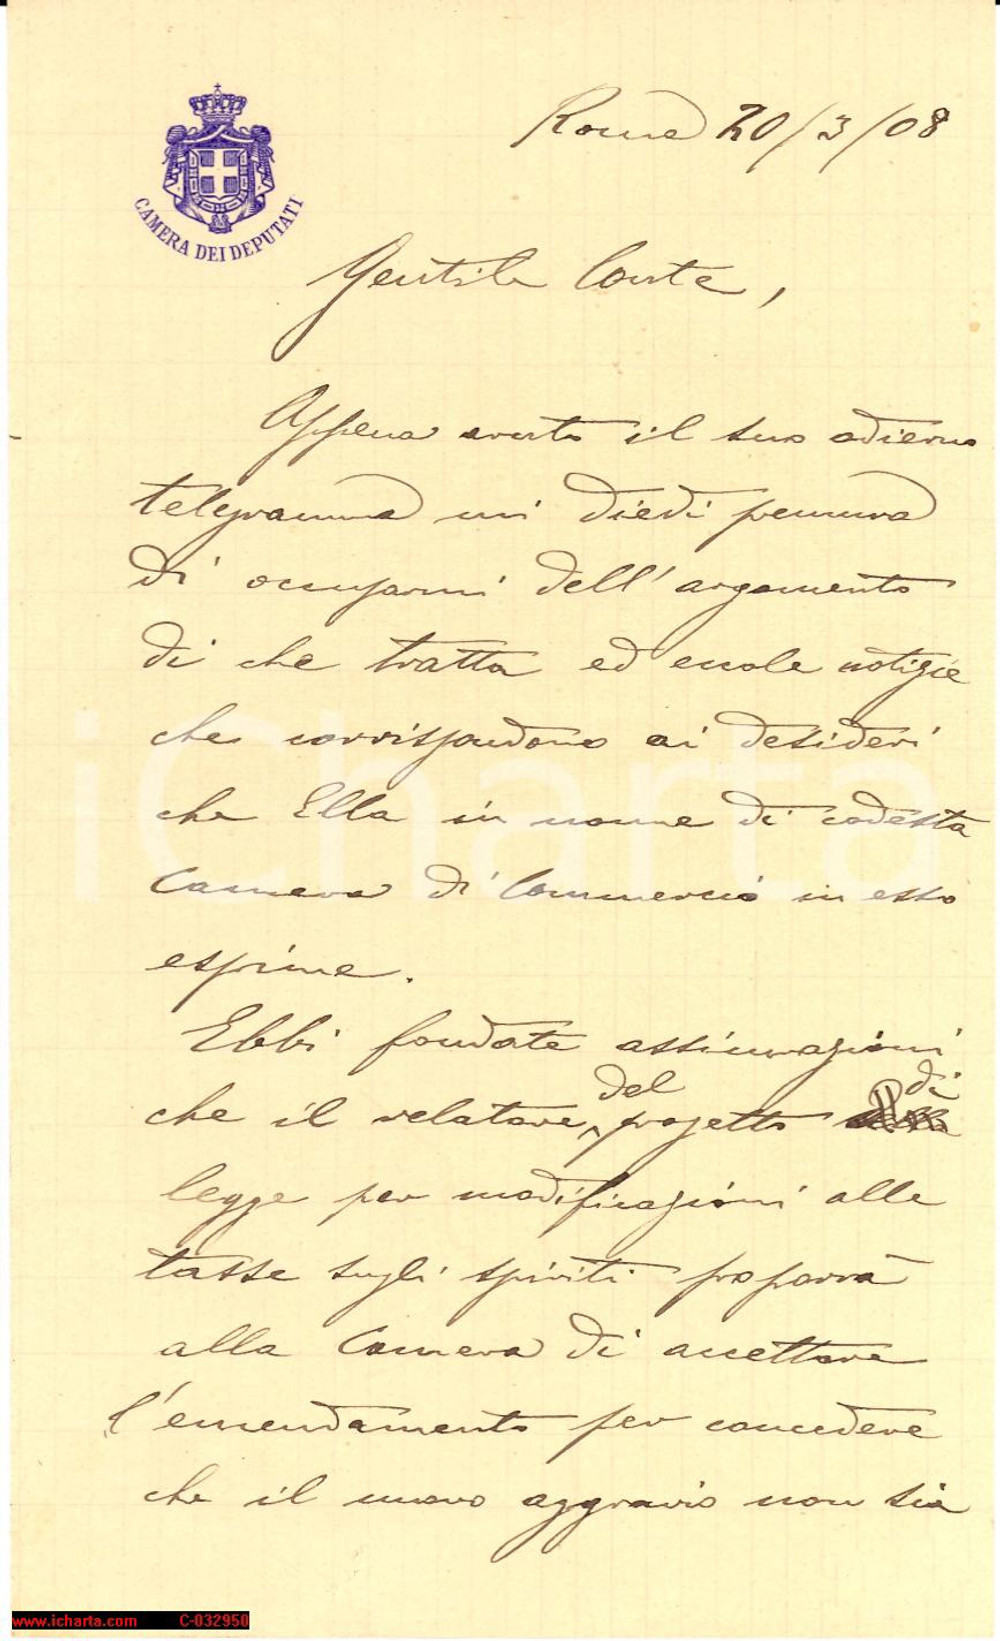 CAMERA DEI DEPUTATI
Roma 20/3/08
Gentile Conte,
Appena avuto il suo odierno
telegramma mi diedi premura
di occuparmi dell'argomento
di che tratta ed eccole notizie
che corrispondono ai desideri
che Ella in nome di codesta
Camera di Commercio in esso
esprime.
Ebbi fondate assicurazioni
che il relatore del progetto di
legge per modificazioni alle
tasse sugli spiriti proporrà
alla Camera di accettare
l'emendamento per concedere
che il nuovo aggravio non sia
iCharta
www.icharta.com C-032950